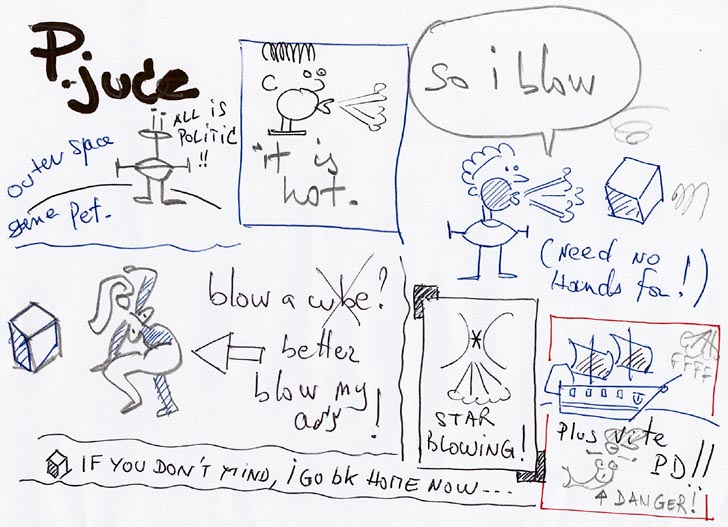 P.jude
ALL is
POLITIC
!!
outer space
Pet.
it is
hot.
so i blow
(Need No
Hands for!)
blow a cube?
better
blow my
STAR
BLOWING!
FFFF
Plus vite
PD!!
DANGER!
IF YOU DON'T MIND, i GO bk HOME NOW...